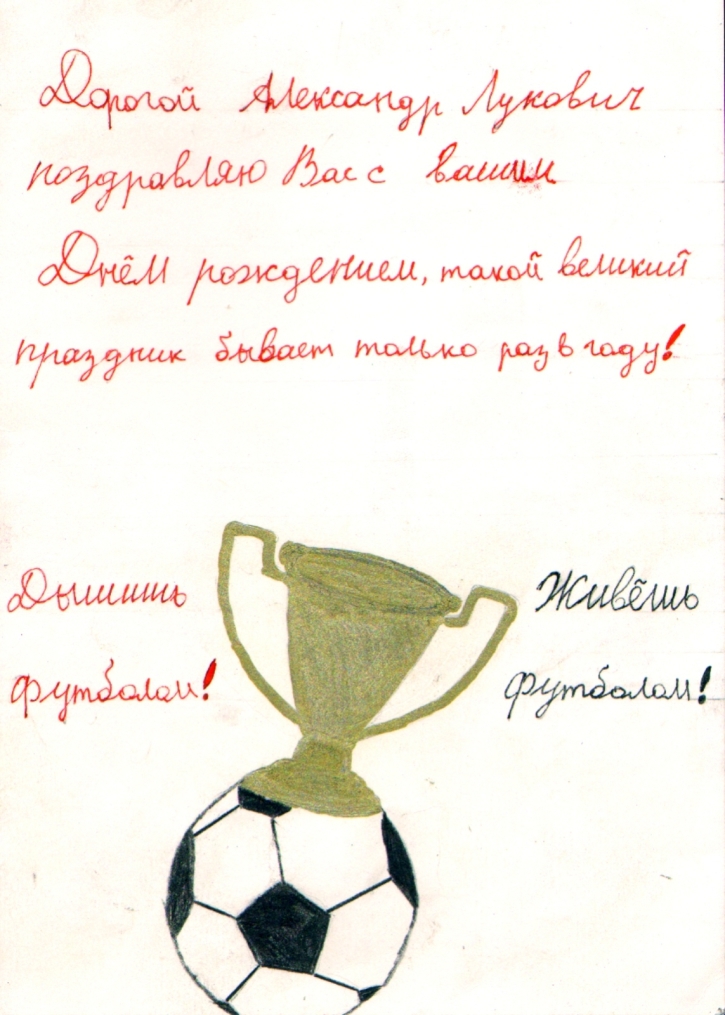 Дорогой Александр Лукович
поздравляю Вас с вашим
Днём рождением, такой великий
праздник бывает только раз в году!
Дышишь
футболом!
Живёшь
футболом!